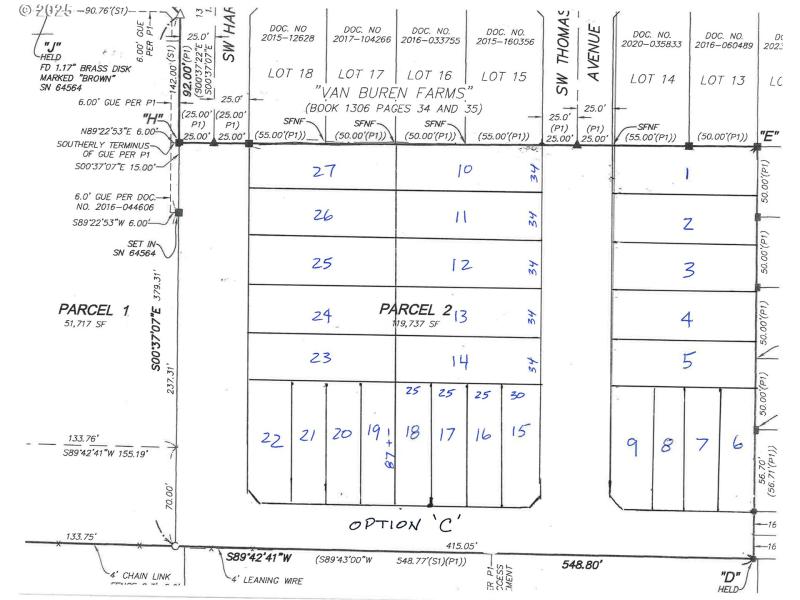 © 2025
90.76'(S1)
"J"
HELD
FD 1.17" BRASS DISK
MARKED "BROWN"
SN 64564
6.00' GUE
PER P1
142.00'(S1)
92.00'(P1)
(S00°37'22"E
(S00°37'07"E
25.0'
13
1.
SW HAR
25.0'
6.00' GUE PER P1
"H"
(25.00'
P1)
25.00'
(25.00'
P1)
25.00'
N89°22'53"E 6.00'
SOUTHERLY TERMINUS
OF GUE PER P1
S00°37'07"E 15.00'
6.0' GUE PER DOC.
NO. 2016-044606
S89°22'53"W 6.00'
SET IN
SN 64564
DOC. NO
2015-12628
DOC. NO
2017-104266
DOC. NO.
2016-033755
DOC. NO.
2015-160356
LOT 18
LOT 17
LOT 16
LOT 15
"VAN BUREN FARMS"
(BOOK 1306 PAGES 34 AND 35)
SFNF
SFNF
SFNF
(55.00'(P1))
(50.00'(P1))
(50.00'(P1))
(55.00'(P1))
SW THOMAS
AVENUE
25.0'
25.0'
(25.00'
P1)
25.00'
(25.00'
P1)
25.00'
DOC. NO.
2020-035833
DOC. NO.
2016-060489
DOC
2023
LOT 14
LOT 13
LO
SFNF
(55.00'(P1))
(50.00'(P1))
"E"
27
10
34
1
50.00'(P1)
26
11
34
2
25
12
34
3
50.00'(P1)
PARCEL 1
51,717 SF
PARCEL 2
119,737 SF
24
13
34
4
50.00'(P1)
23
14
34
5
S00°37'07"E 379.31'
237.31'
25
25
25
30
50.00'(P1)
22
21
20
19
87 +-
18
17
16
15
9
8
7
6
133.76'
S89°42'41"W 155.19'
70.00'
56.70'
(56.71'(P1))
OPTION 'C'
16
16
133.75'
S89°42'41"W
(S89°43'00"W
548.77'(S1)(P1))
415.05'
548.80'
4' CHAIN LINK
4' LEANING WIRE
"D"
HELD